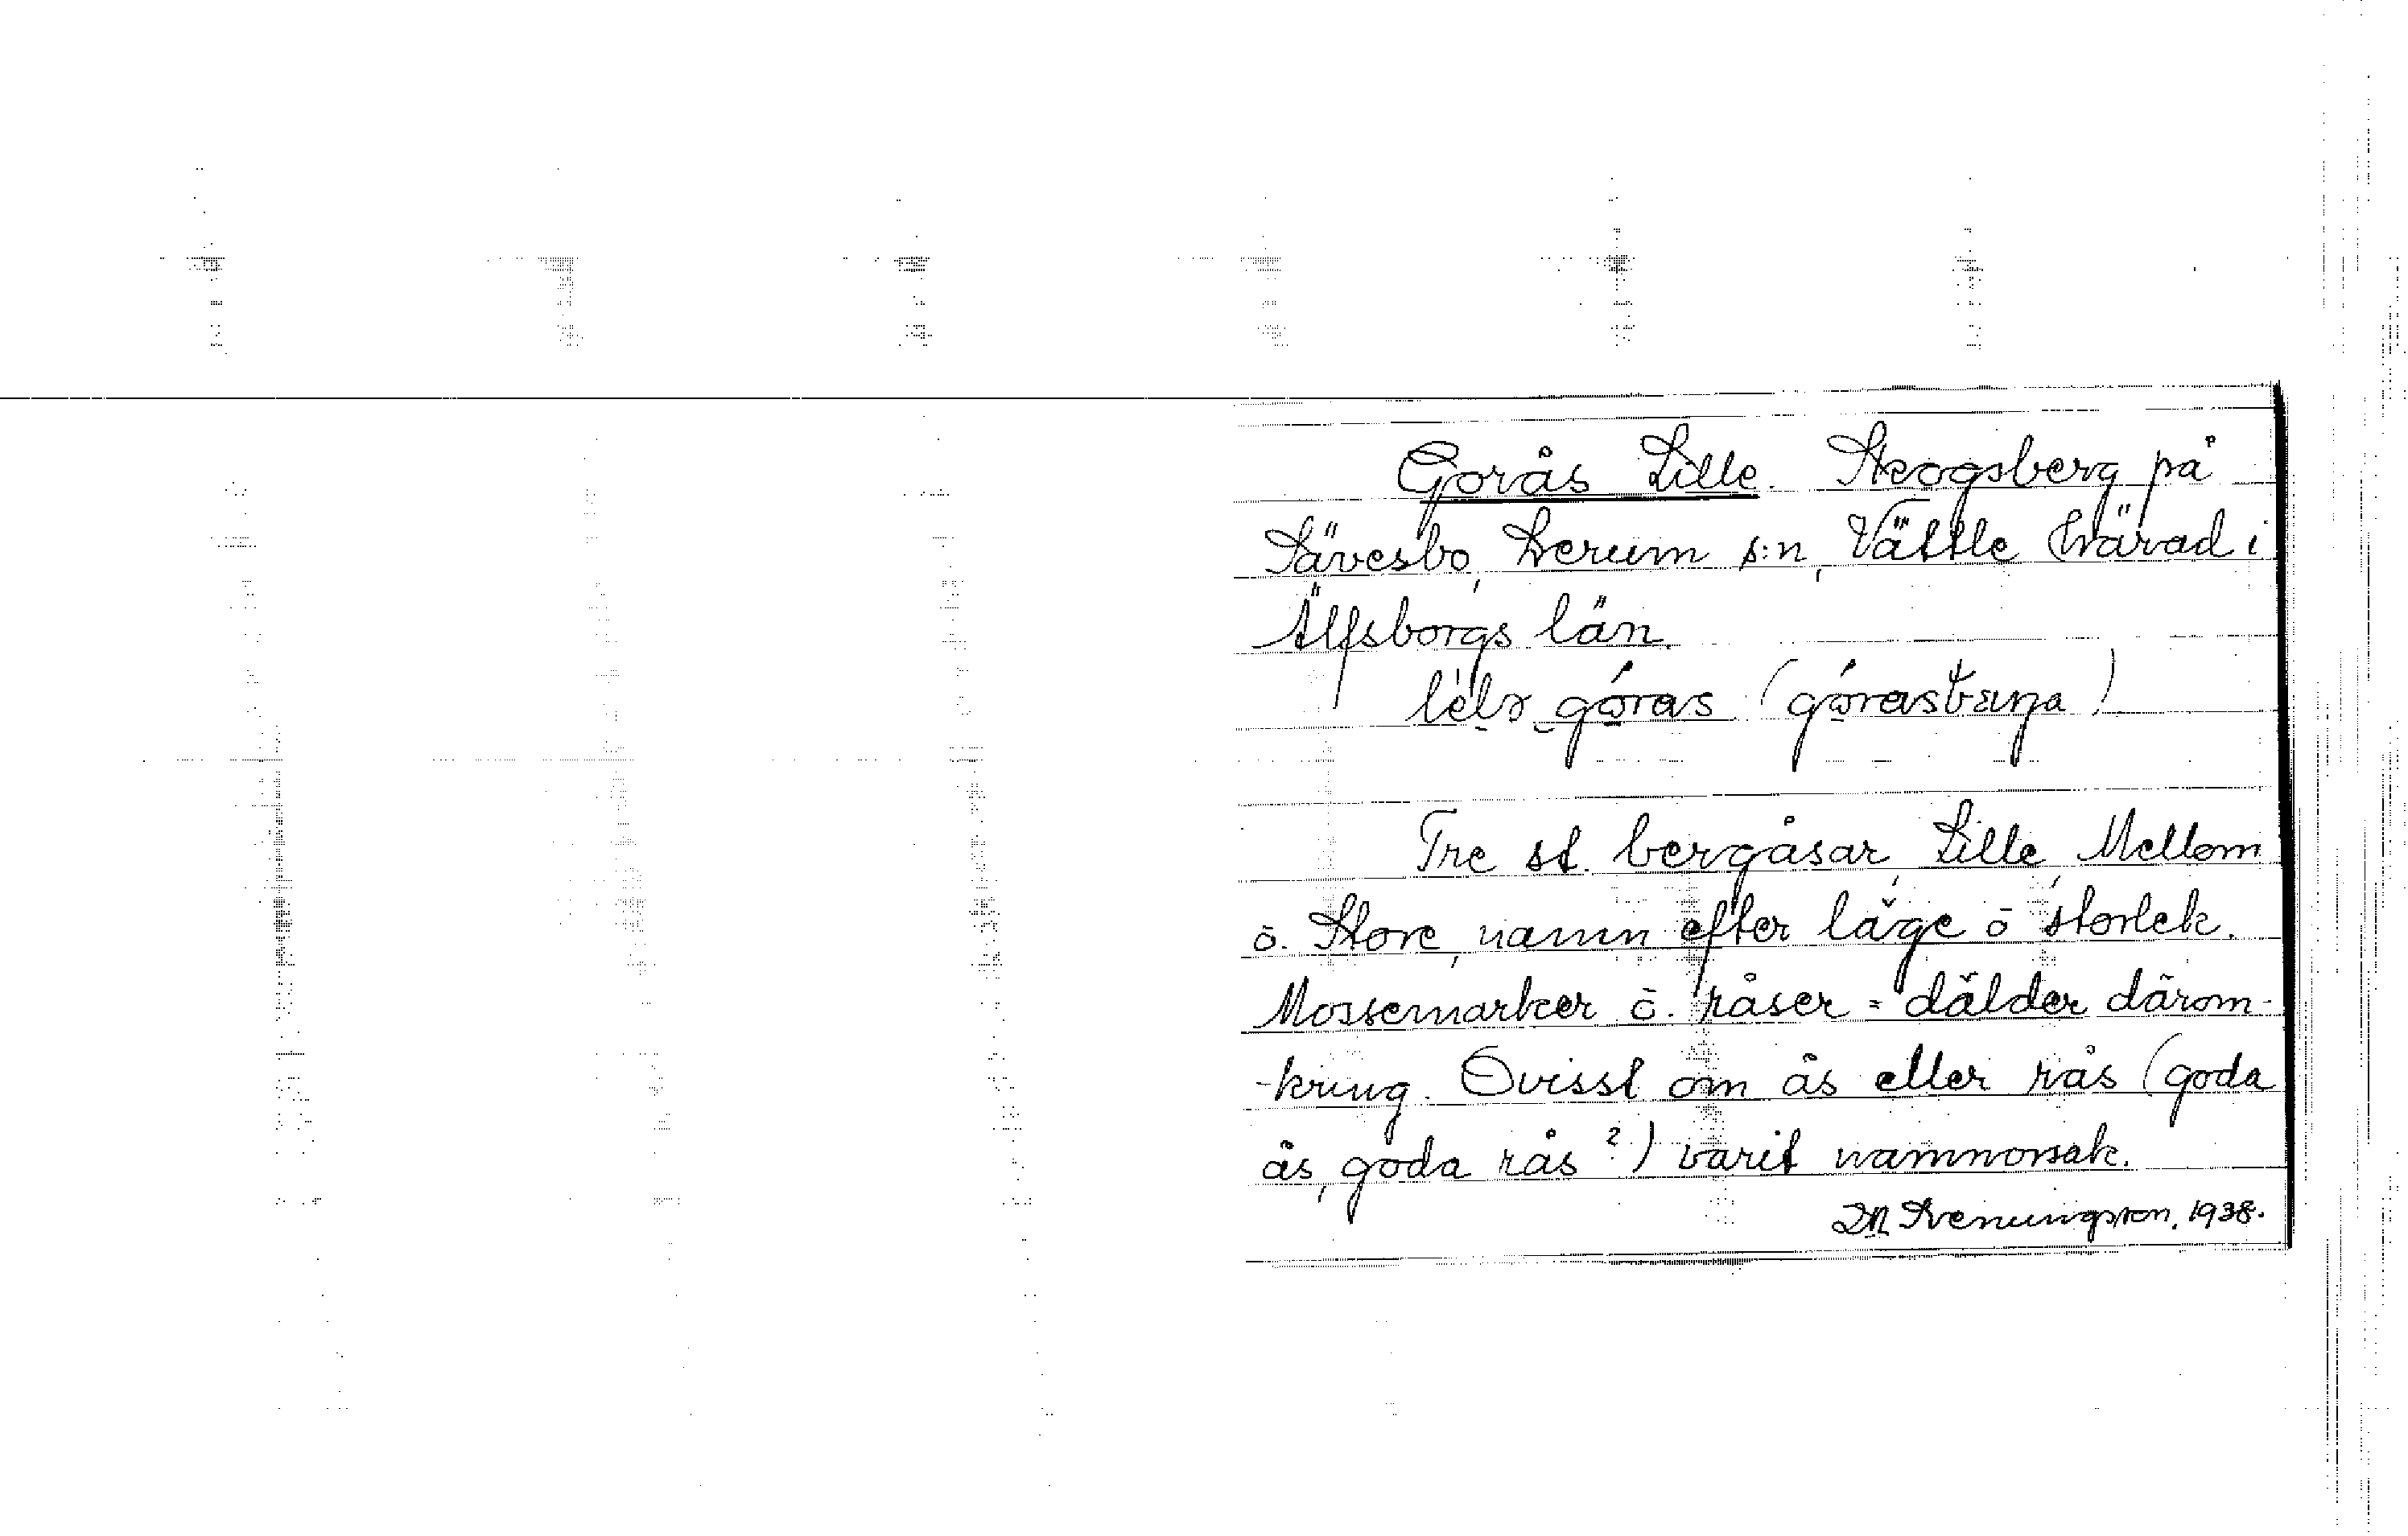 Gorås Lille. Skogsberg på
Sävesbo, Lerum s:n, Vättle Härad i
Älfsborgs län.
Tre st. bergåsar, Lille, Mellom
ō. Store, namn efter läge ō storlek.
Mossemarker ō. råser = dälder därom-
-kring. Ovisst om ås eller rås (goda
ås, goda rås?) varit namnorsak.
Svenungsson, 1938.